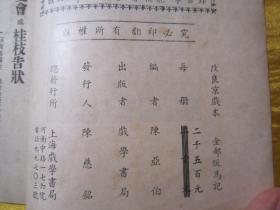 版權所有翻印必究
改良京戲本 全部販馬記
每冊 二千五百元
編者 陳亞伯
出版者 戲學書局
發行人 陳慈銘
總發行所 上海戲學書局
河南中路一七
桂枝告狀